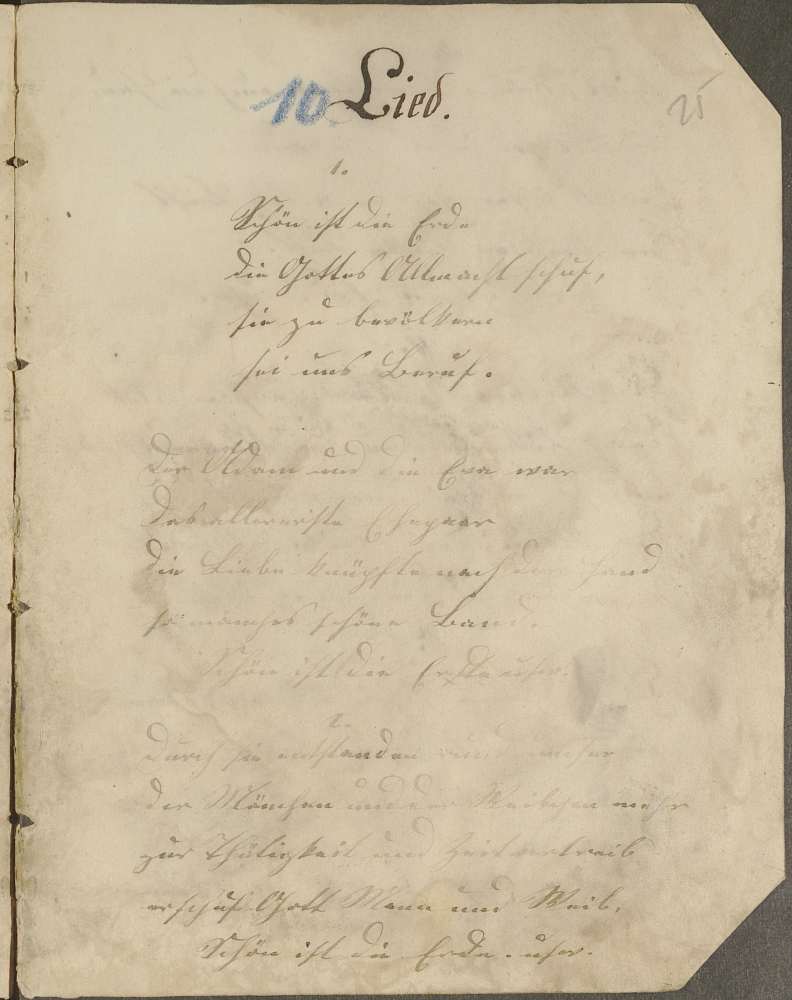 10 Lied.
25
1.
Schön ist die Erde
die Gottes Allmacht schuf,
sie zu bevölkern
sei uns Beruf.
Der Adam und die Eva war
das allererste Ehepaar
die Liebe knüpfte nach der Hand
so manches schöne Band.
Schön ist die Erde usw.
2.
Durch sie entstanden rund umher
der Mänchen und der Weibchen mehr
zur Thätigkeit und Zeitvertreib
erschuf Gott Mann und Weib,
Schön ist die Erde. usw.